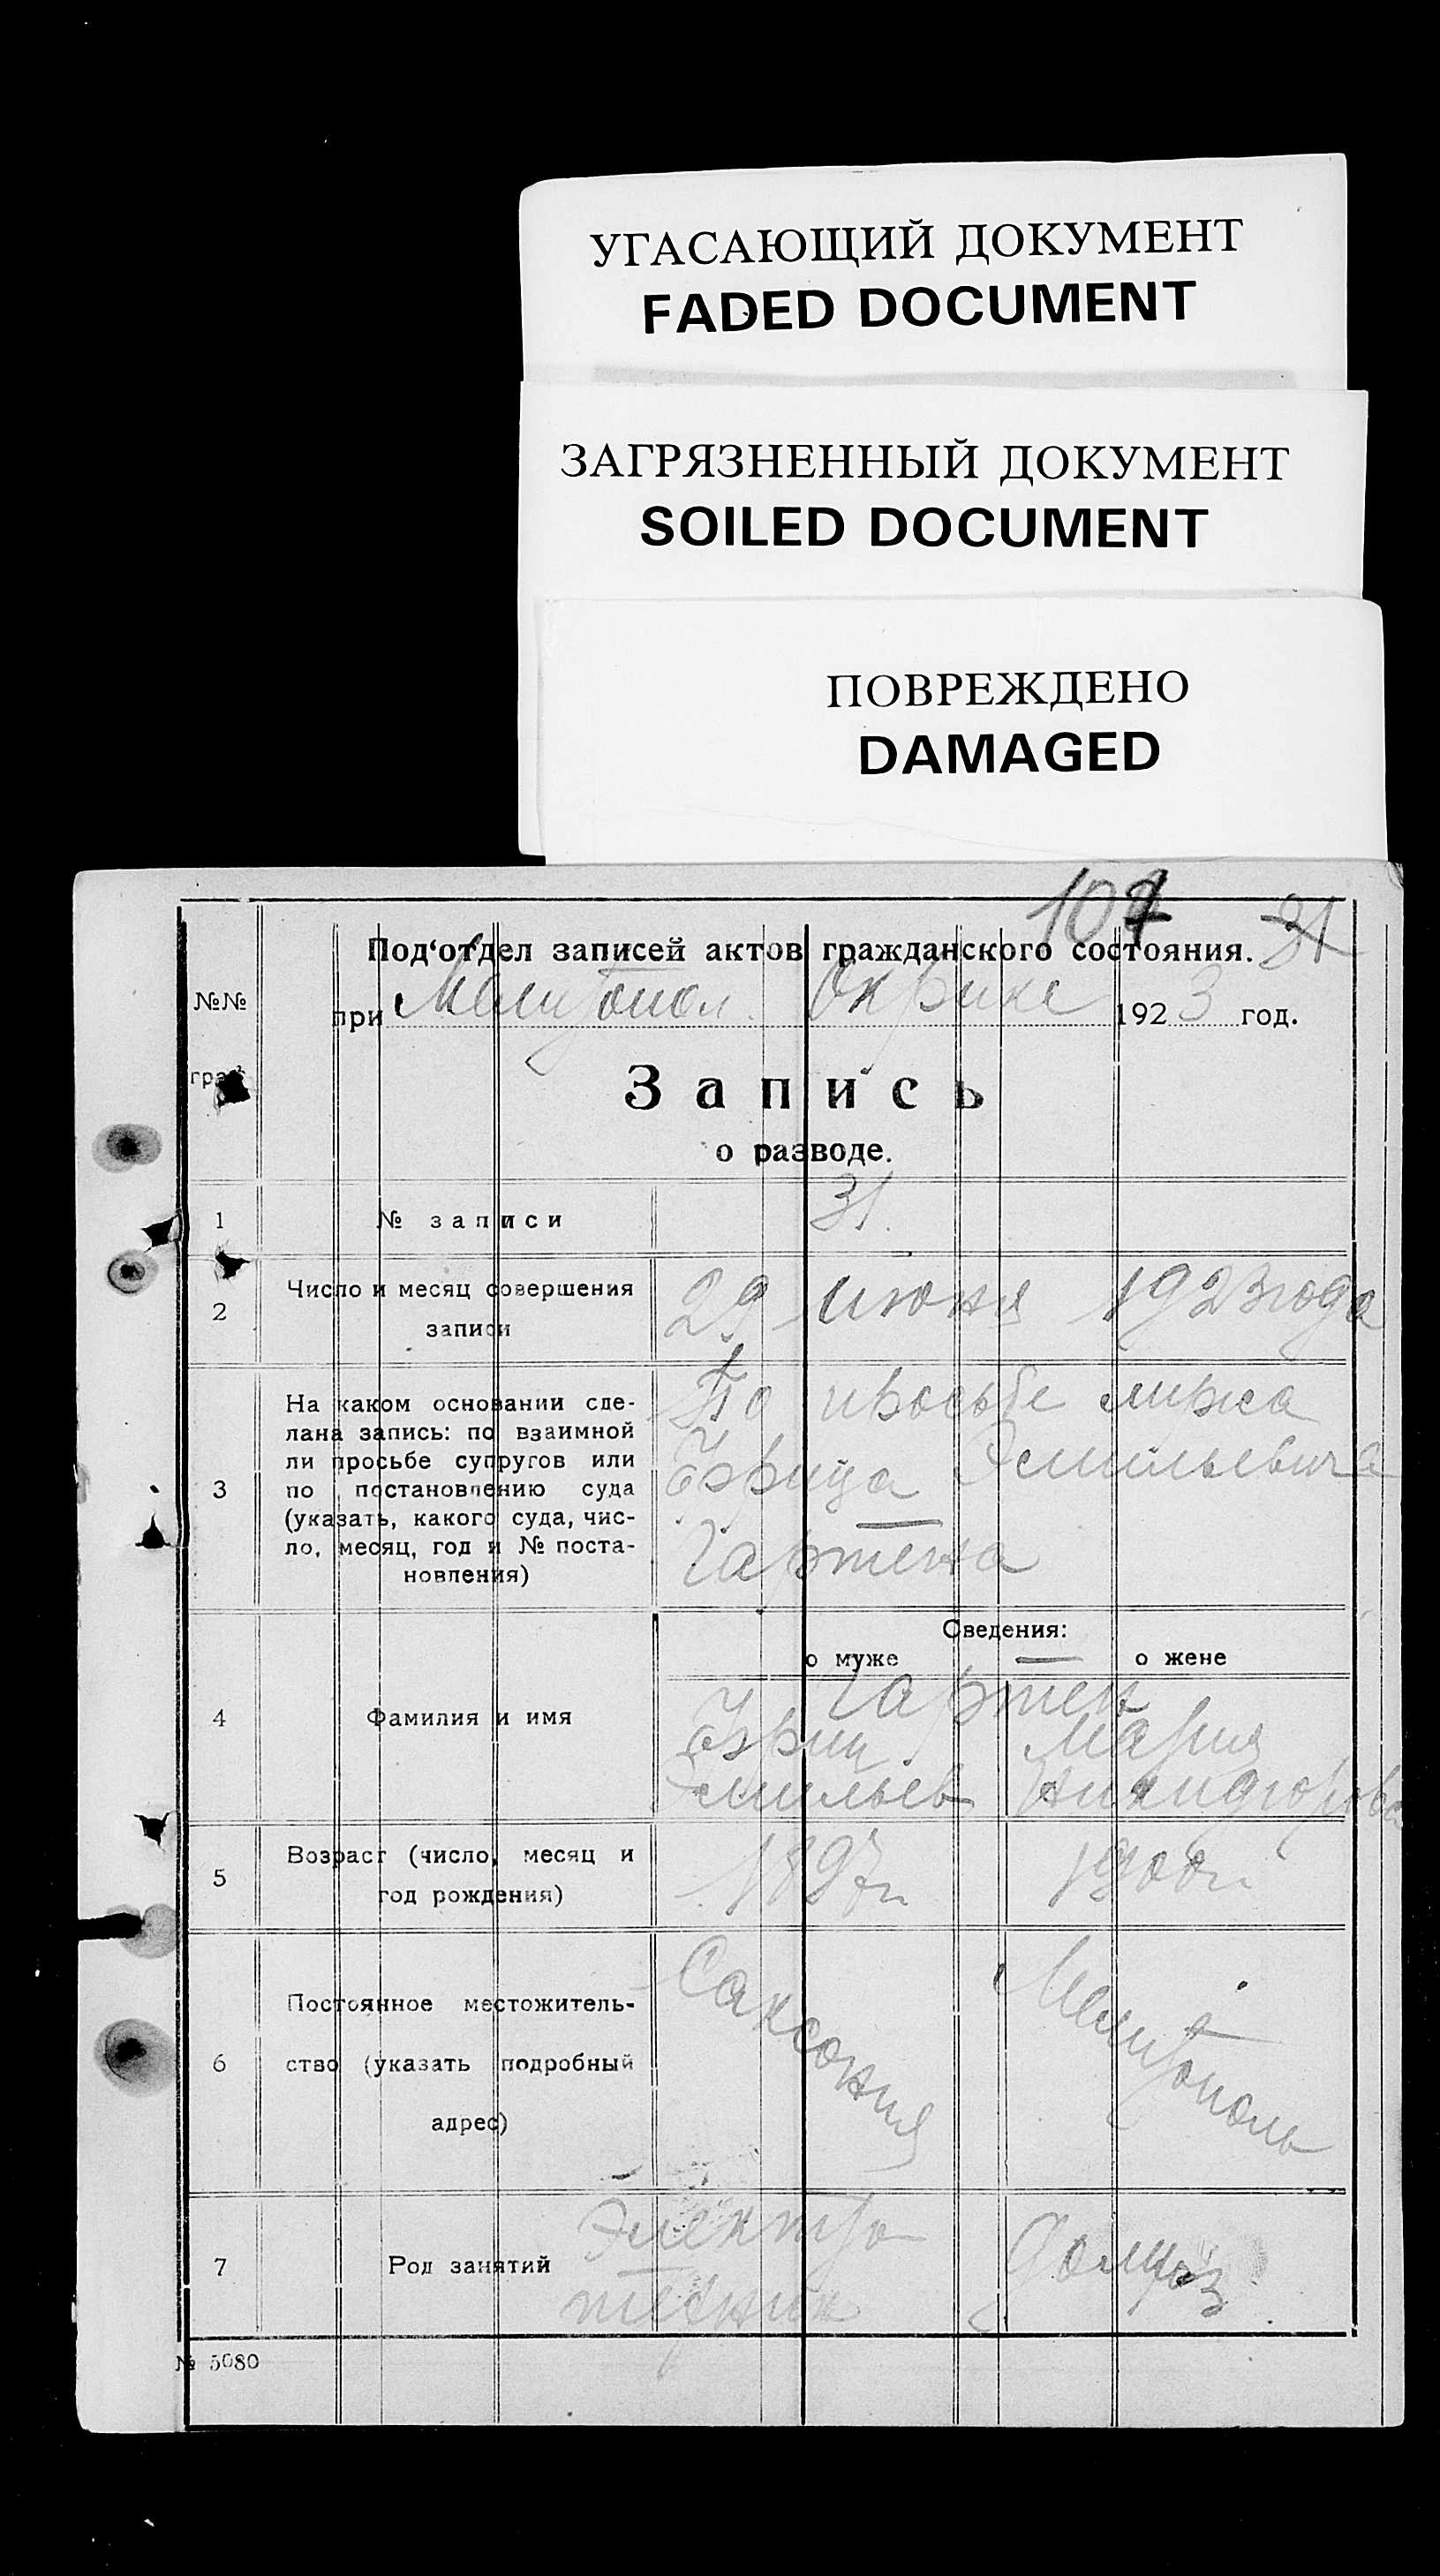 УГАСАЮЩИЙ ДОКУМЕНТ
FADED DOCUMENT
ЗАГРЯЗНЕННЫЙ ДОКУМЕНТ
SOILED DOCUMENT
ПОВРЕЖДЕНО
DAMAGED
Под‘отдел записей актов гражданского состояния. 31
№№
при Мелитопол. Окрике 1923 год.
граф
Запись
о разводе.
1 № записи 31.
2 Число и месяц совершения 29 июня 1923 года
записи
На каком основании сде- По просьбе мужа
лана запись: по взаимной
ли просьбе супругов или Фрица Эмильевича
3 по постановлению суда
(указать, какого суда, чис-
ло, месяц, год и № поста- Гартена
новления)
Сведения:
о муже о жене
Гартен
4 Фамилия и имя Фриц Мария
Эмильев Никифорова
5 Возраст (число, месяц и 1897 1900
год рождения)
Постоянное местожитель- Саксония Мелитополь
6 ство (указать подробный
адрес)
Электро
7 Род занятий домхоз
техник
№ 5080